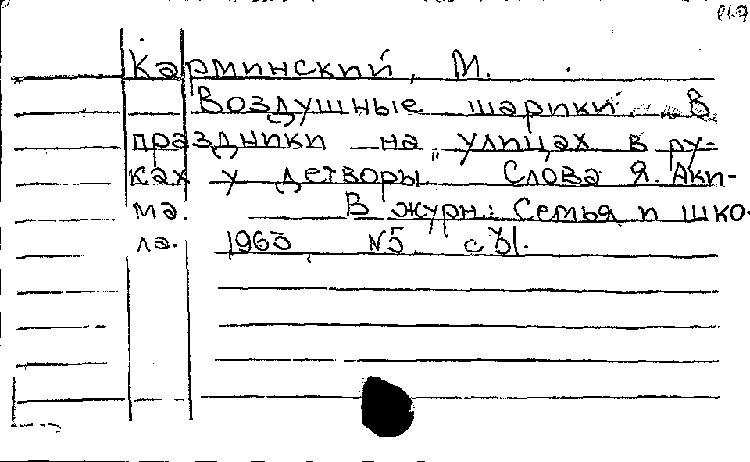 Карминский, М.
Воздушные шарики. В
праздники на улицах в ру-
ках у детворы Слова Я. Аки-
ма. В журн.: Семья и шко-
ла. 1963 №5